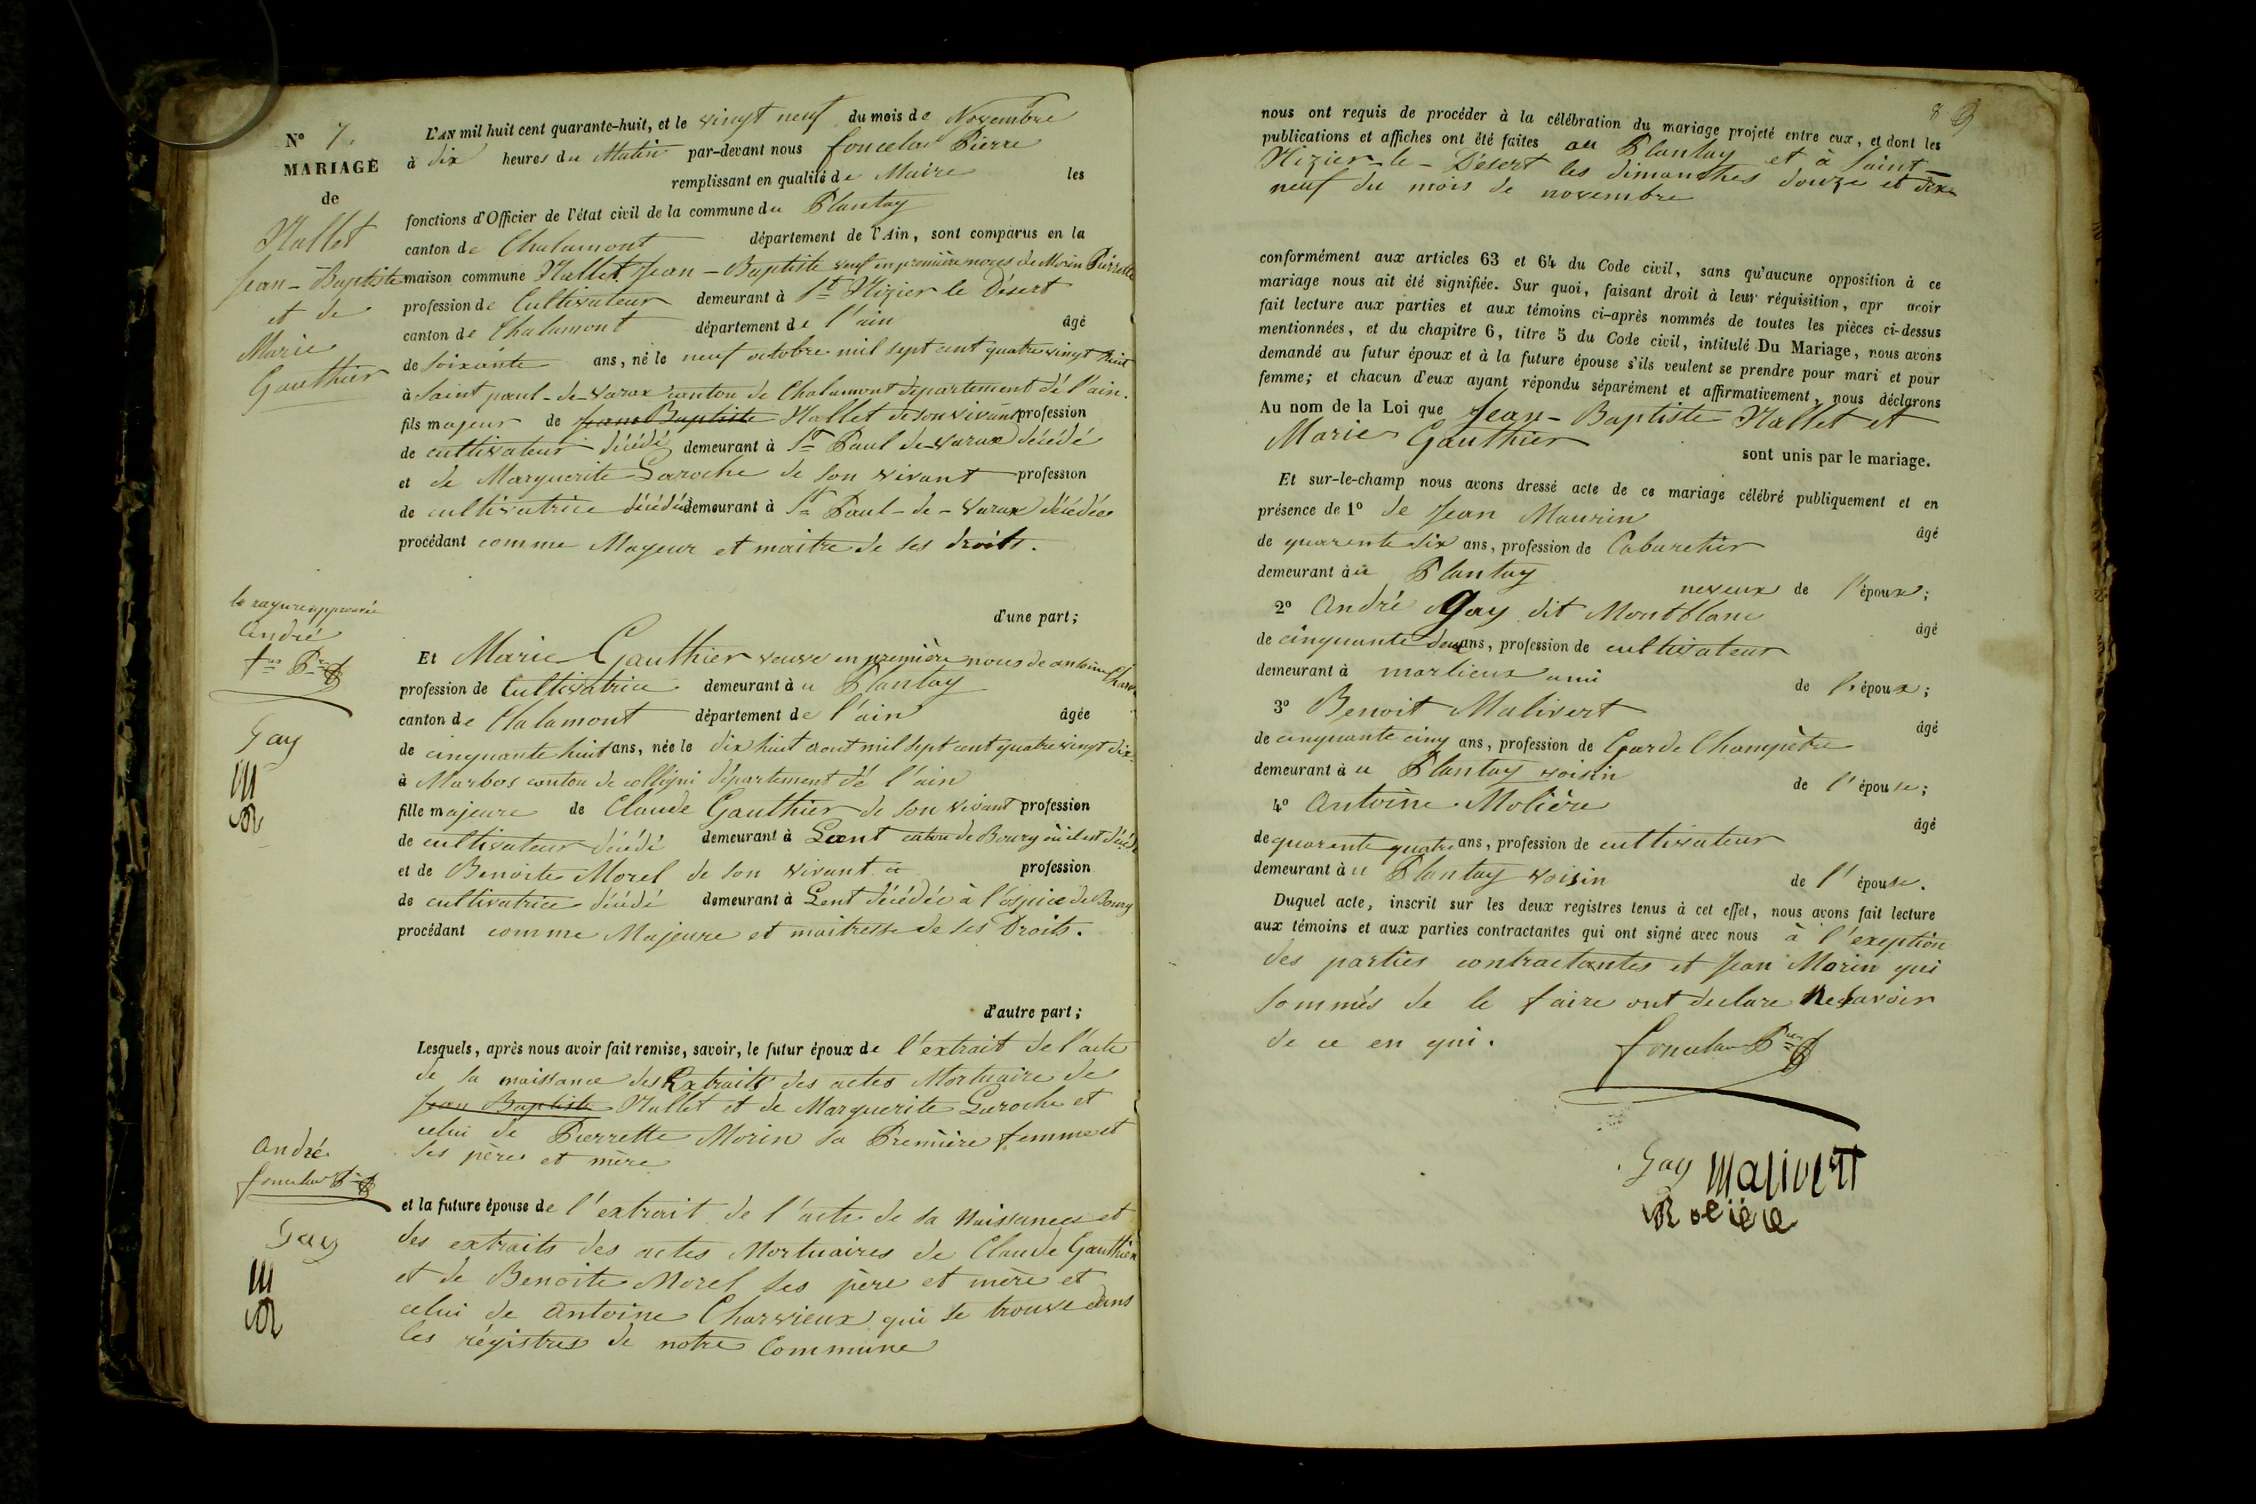 N° 7.
MARIAGE
de
Nallet
Jean-Baptiste
et de
Marie
Gauthier
L'AN mil huit cent quarante-huit, et le vingt neuf du mois de Novembre
à dix heures du Matin par-devant nous foncelas Pierre
remplissant en qualité de Maire les
fonctions d'Officier de l'état civil de la commune du Plantay
canton de Chalamont département de l'Ain, sont comparus en la
maison commune Nallet Jean-Baptiste veuf en première noces de Morin Pierrette
profession de Cultivateur demeurant à St Nizier le Désert
canton de Chalamont département de l'ain âgé
de soixante ans, né le neuf octobre mil sept cent quatre vingt huit
à Saint paul-de-varax canton de Chalamont département de l'ain.
fils majeur de Jean Baptiste Nallet de son vivant profession
de cultivateur décédé demeurant à St Paul de-varax décédé
et de Marguerite Laroche de son vivant profession
de cultivatrice décédée demeurant à St Paul-de-varax décédée
procédant comme Mageur et maitre de ses droits.
d'une part;
la rayure approuvée
André
fas Pre
Gay
M
Et Marie Gauthier veuve en première nous de antoine Char
profession de Cultivatrice demeurant à u Plantay
canton de Chalamont département de l'ain âgée
de cinquante huit ans, née le dix huit aout mil sept cent quatre vingt dix
à Marbos canton de colligni département de l'ain
fille majeure de Claude Gauthier de son vivant profession
de cultivateur décédé demeurant à Lent canton de Bourg où il est décédé
et de Benoite Morel de son vivant profession
de cultivatrice décédé demeurant à Lent décédée à l'ospice de Bourg
procédant comme Majeure et maitresse de ses Droits.
d'autre part;
Lesquels, après nous avoir fait remise, savoir, le futur époux de l'extrait de l'acte
de sa naissance des Extraits des actes Mortuaire de
Jean Baptiste Nallet et de Marguerite Laroche et
celui de Pierrette Morin sa Première femme et
ses père et mère
André
foncelas Pre
Gay
M
et la future épouse de l'extrait de l'acte de sa Naissances et
des extraits des actes Mortuaires de Claude Gauthier
et de Benoite Morel ses père et mère et
celui de Antoine Charvieux qui se trouve dans
les régistres de notre Commune
8
nous ont requis de procéder à la célébration du mariage projeté entre eux, et dont les
publications et affiches ont été faites au Plantay et à Saint-
Nizier-le-Désert les dimanches douze et dix
neuf du mois de novembre
conformément aux articles 63 et 64 du Code civil, sans qu'aucune opposition à ce
mariage nous ait été signifiée. Sur quoi, faisant droit à leur réquisition, apr avoir
fait lecture aux parties et aux témoins ci-après nommés de toutes les pièces ci-dessus
mentionnées, et du chapitre 6, titre 5 du Code civil, intitulé Du Mariage, nous avons
demandé au futur époux et à la future épouse s'ils veulent se prendre pour mari et pour
femme; et chacun d'eux ayant répondu séparément et affirmativement, nous déclarons
Au nom de la Loi que Jean-Baptiste Nallet et
Marie Gauthier
sont unis par le mariage.
Et sur-le-champ nous avons dressé acte de ce mariage célébré publiquement et en
présence de 1° de Jean Maurin
âgé
de quarente dix ans, profession de Cabaretier
demeurant à u Plantay neveux de l'époux;
2° André Gay dit Montblanc
âgé
de cinquante deux ans, profession de cultivateur
demeurant à marlieux ami de l'époux;
3° Benoit Malivert
âgé
de cinquante cinq ans, profession de Garde Champètre
demeurant à u Plantay voisin de l'épouse;
4° Antoine Molière
âgé
de quarente quatre ans, profession de cultivateur
demeurant à u Plantay voisin de l'épouse.
Duquel acte, inscrit sur les deux registres tenus à cet effet, nous avons fait lecture
aux témoins et aux parties contractantes qui ont signé avec nous à l'exeption
des parties contractantes et Jean Morin qui
sommés de le faire ont declare Ne savoir
de ce en qui.
foncelas Pre
Gay Malivert
Moliere